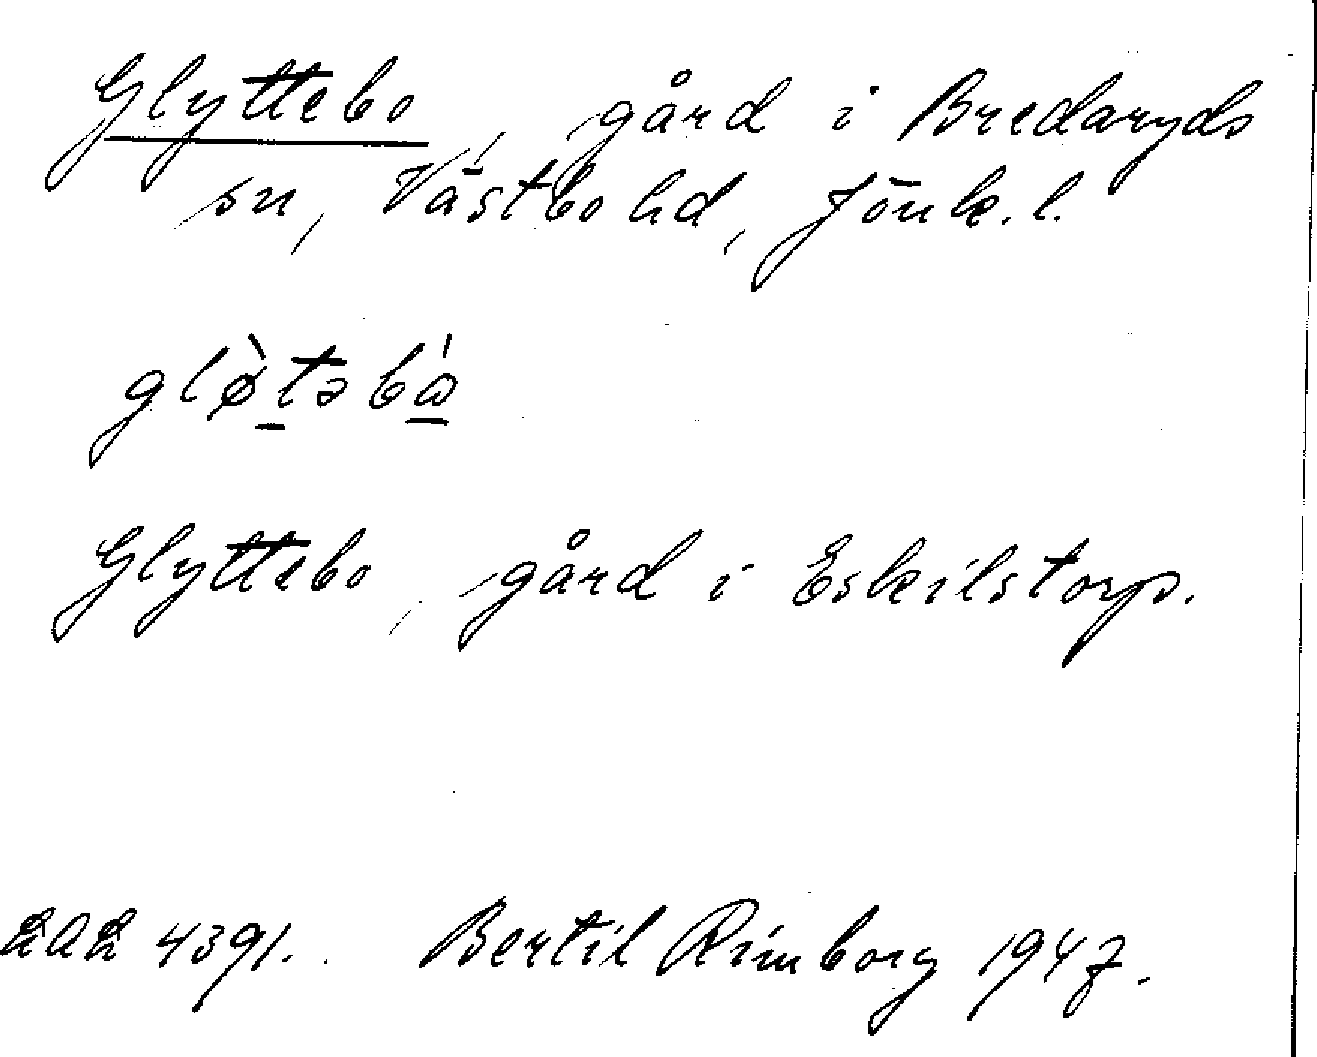 Glyttebo, gård i Bredaryds
sn, Västbo hd, Jönk. l.
glø̀təbά
Glyttebo, gård i Eskilstorp.
LAL 4391. Bertil Rimborg 1947.